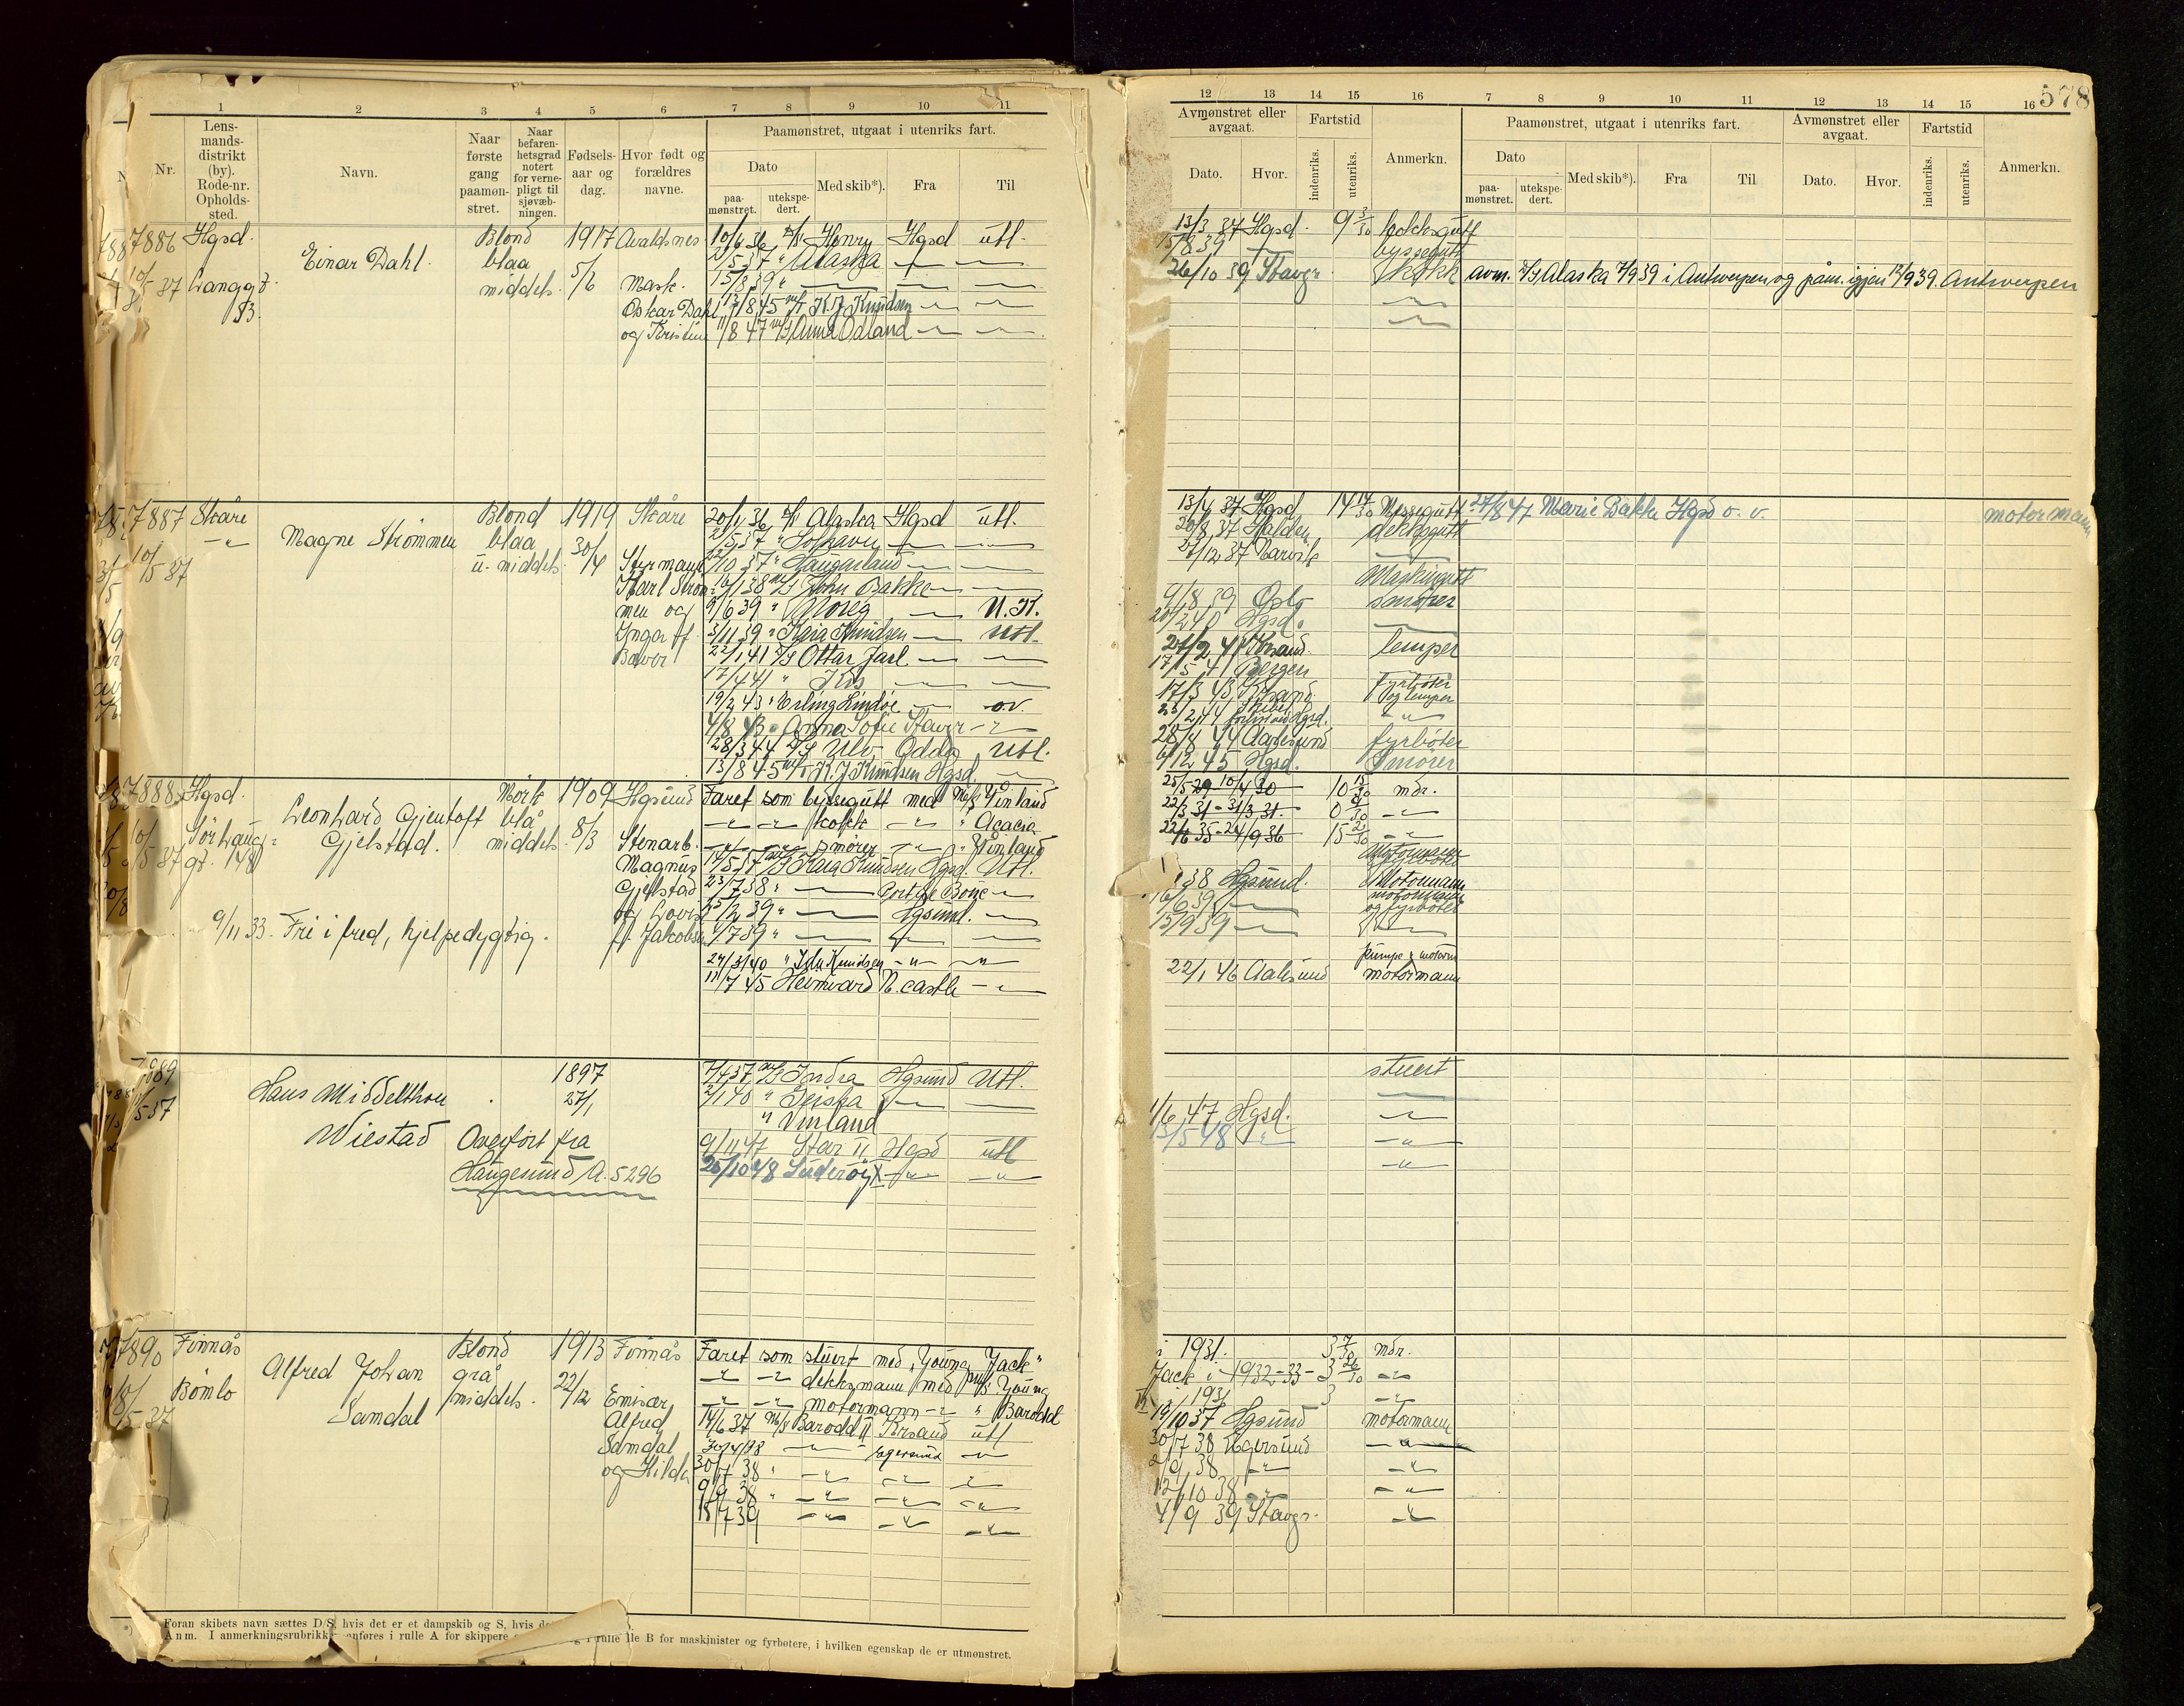 1 2 3 4 5 6 7 8 9 10 11
Nr. Lens-mands-distrikt (by). Rode-nr. Opholds-sted. Navn. Naar første gang paamøn-stret. Naar befaren-hetsgrad notert for verne-pligt til sjøvæb-ningen. Fødsels-aar og dag. Hvor født og forældres navne.
Paamønstret, utgaat i utenriks fart.
Dato Med skib*). Fra Til
paa-mønstret. utekspe-dert.
7886 Hgsd. Blond 1917 Avaldsnes 10/6 36 Henry Hgsd utl.
Einar Dahl. blaa Alaska
10/5 37 Langgt. middels. 5/6 Mask. 15/8 39
Oskar Dahl 13/8 45 K. J. Knudsen
og Kristine 11/8 47 Anna Odland
7887 Skåre Blond 1919 Skåre 20/1 36 Alaska Hgsd utl.
Magne Strømmen blaa 2/5 37 Solhavn
10/5 37 u. middels. 30/4 Styrmann 22/10 37 Haugarland
Karl Strøm- 16/1 38 John Bakke
men og 9/6 39 Noreg U.K.
Inga f. 3/11 39 Kaia Knudsen Utl.
22/1 41 Ottar Jarl
17/4 41 Iris
19/2 43 Erling Lindøe ov.
4/8 43 Anna Sofie Stavgr
28/3 44 Ulv Odda Utl.
13/8 45 K. J. Knudsen Hgsd.
7888 Hgsd. Mørk 1909 Hgsund Faret som byssegutt med M/S Vinland
Leonhard Gjentoft blå kokk " Acacia
10/5 37 Sør Haug- Gjelstad. middels. 8/3 Stenarb. smører " Vinland
gt. 148 Magnus 14/5 37 Kaia Knudsen Hgsd. Utl.
Gjelstad 23/7 38 " Port de Bouc
og Lovise 25/2 39 " Hgsund.
9/11 33. Fri i fred, hjelpedygtig. f. Jakobsen 1/7 39 "
24/3/40 " Ida Knudsen
11/7 45 Heimvard N.castle
7889 1897 7/4 37 M/S Indra Hgsund Utl.
Hans Middelthon 27/1 2/1 40 "
5 37 " Vinland
Wiestad Overført fra 9/11 47 Star II Hgsd utl
Haugesund A. 5296 25/10 48 Suderøy X
7890 Finnås Blond 1913 Finnås Faret som stuert med "Young Jack"
Alfred Johan grå dekksmann med M/S Young
10/5 37 Bømlo middels. 22/12 Emisær motormann " Barodd
Samdal Alfred 14/6 37 M/S Barodd II Krsand utl
Samdal 30/4/38 Egersund
og Hilda 30/7 38 "
9/9 38 "
18/7 39
Foran skibets navn sættes D/S, hvis det er et dampskib og S, hvis
Anm. I anmerkningsrubrikk anføres i rulle A for skippere rulle B for maskinister og fyrbøtere, i hvilken egenskap de er utmønstret.
578
12 13 14 15 16 7 8 9 10 11 12 13 14 15 16
Avmønstret eller avgaat. Fartstid Anmerkn. Paamønstret, utgaat i utenriks fart. Avmønstret eller avgaat. Fartstid Anmerkn.
Dato. Hvor. indenriks. utenriks. Dato Med skib*). Fra Til Dato. Hvor. indenriks. utenriks.
paa-mønstret. utekspe-dert.
13/3 37 Hgsd. 9 3/30 kokksgutt
15/8 39 byssegutt
26/10 39 Stavgr. Kokk avm. D/S Alaska 7/9 39 i Antwerpen og påm. igjen 12/9 39. Antwerpen
13/4 37 Hgsd 14 14/30 Messegutt 27/8 47 Marie Bakke Hgsd o. v. motormann
20/8 37 Halden dekksgutt
27/12 37 Narvik
Maskingutt
9/8 39 Oslo smører
20/2 40 Hgsd.
27/2 41 Krsand. lemper
17/5 41 Bergen
17/3 43 Krsand. Fyrbøter og lemper
23/2 44 Skibet forlist ved Hgsd.
28/8 44 Aalesund fyrbøter
9/12 45 Hgsd. Smører
25/5 29 - 10/4 30 10 15/30 mdr.
22/3 31 - 31/3 31. 0 9/30
22/6 35 - 24/9 36 15 2/30
Motormann og fyrbøter
38 Hgsund. Motormann
16/6 39 motormann og fyrbøter
15/9 39
pumpe & motorm
22/1 46 Aalesund motormann
stuert
1/6 47 Hgsd.
13/5 48
i 1931. 3 7/30 mdr.
Jack i 1932-33- 3 26/30
II i 1931 3
19/10 37 Hgsund motormann
30/7 38 Egersund
2/9 38
12/10 38
4/9 39 Stavgr.